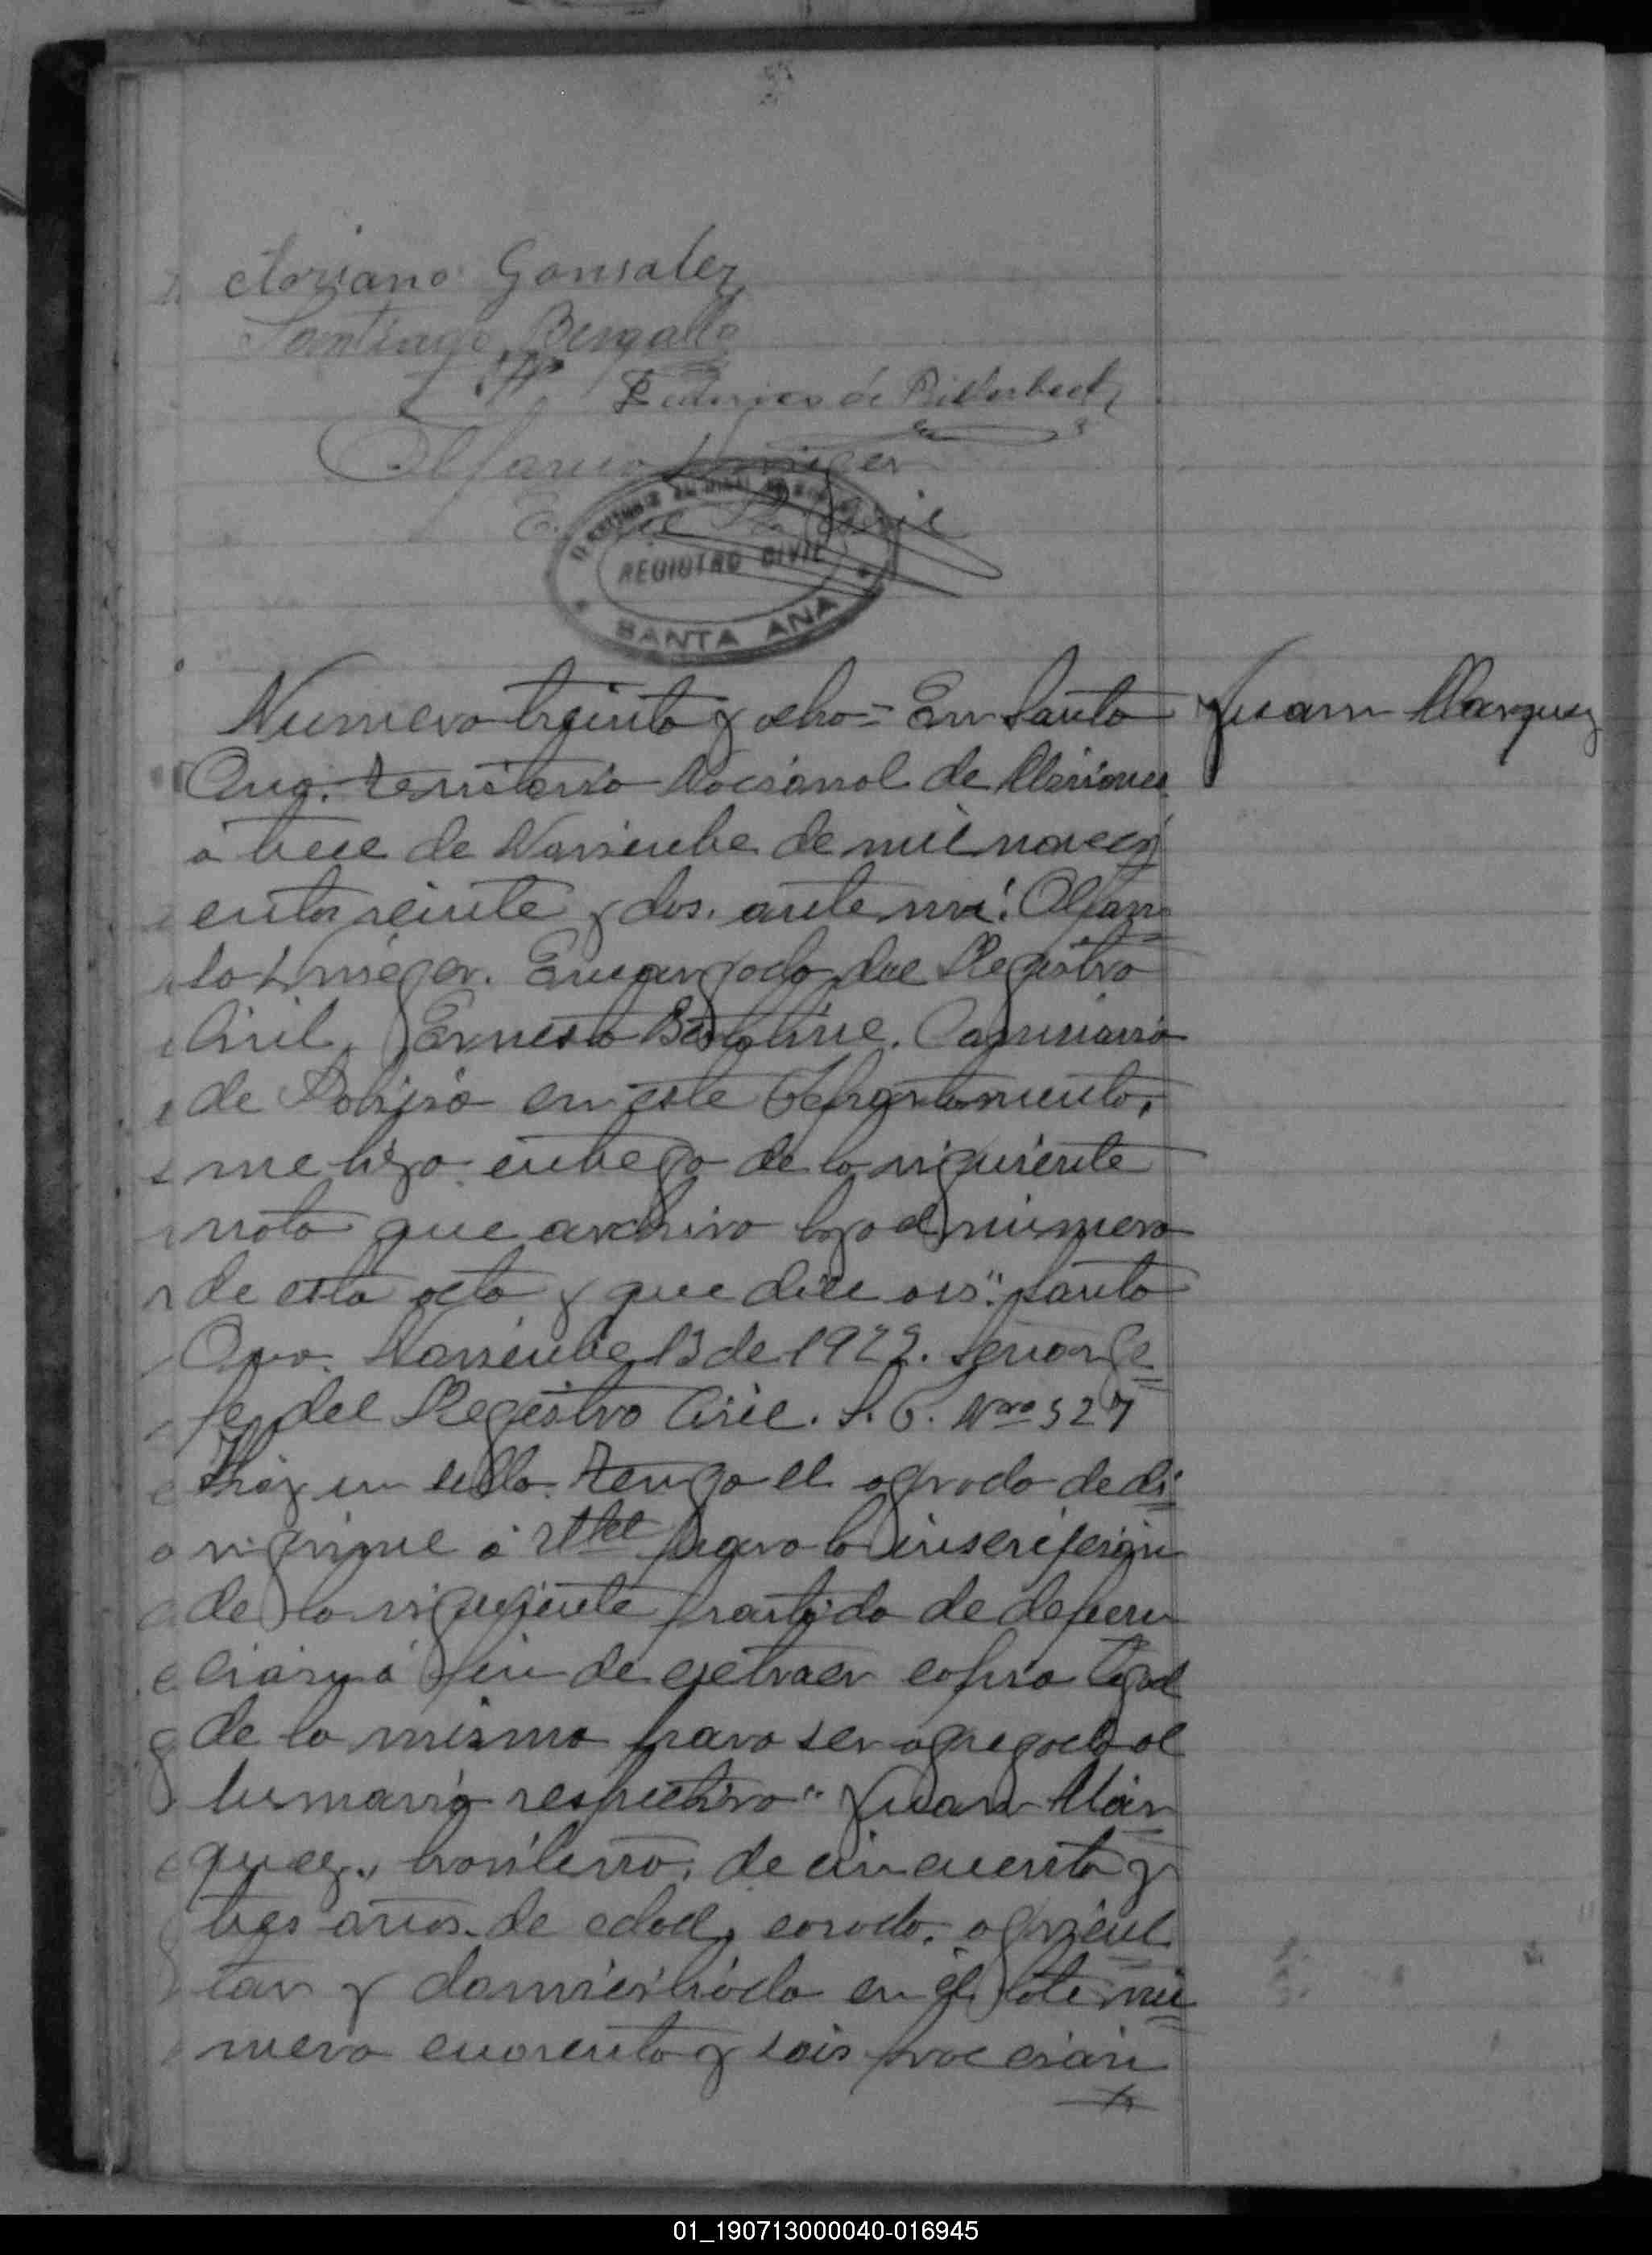 Mariano Gonsalez
Santiago Bergallo
Federico de
Alfonso
E. del R. Civil
REGISTRO CIVIL
SANTA ANA
Numero treinta y ocho = En Santa
Juan Marquez
Ana. territorio Nacional de Misiones
a trece de Noviembre de mil noveci
entos veinte y dos. ante mi: Alfon
so Encargado del Registro
Civil, Ernesto Comisario
de Policia en este Departamento,
me hizo entrega de la siguiente
nota que archivo bajo el numero
de esta acta y que dice asi: "Santa
Ana. Noviembre 13 de 1922. Señor Je
fe del Registro Civil. S. D. Nro 327
Hay un sello. Tengo el agrado de di
rigirme a Vd para la inscripción
de la siguiente partida de defun
ción, a fin de extraer copia legal
de la misma para ser agregada al
sumario respectivo" Juan Már
quez., brasilero, de cincuenta y
tres años de edad, casado, agricul
tor y domiciliado en el lote nu
mero cuarenta y seis sección
01_190713000040-016945